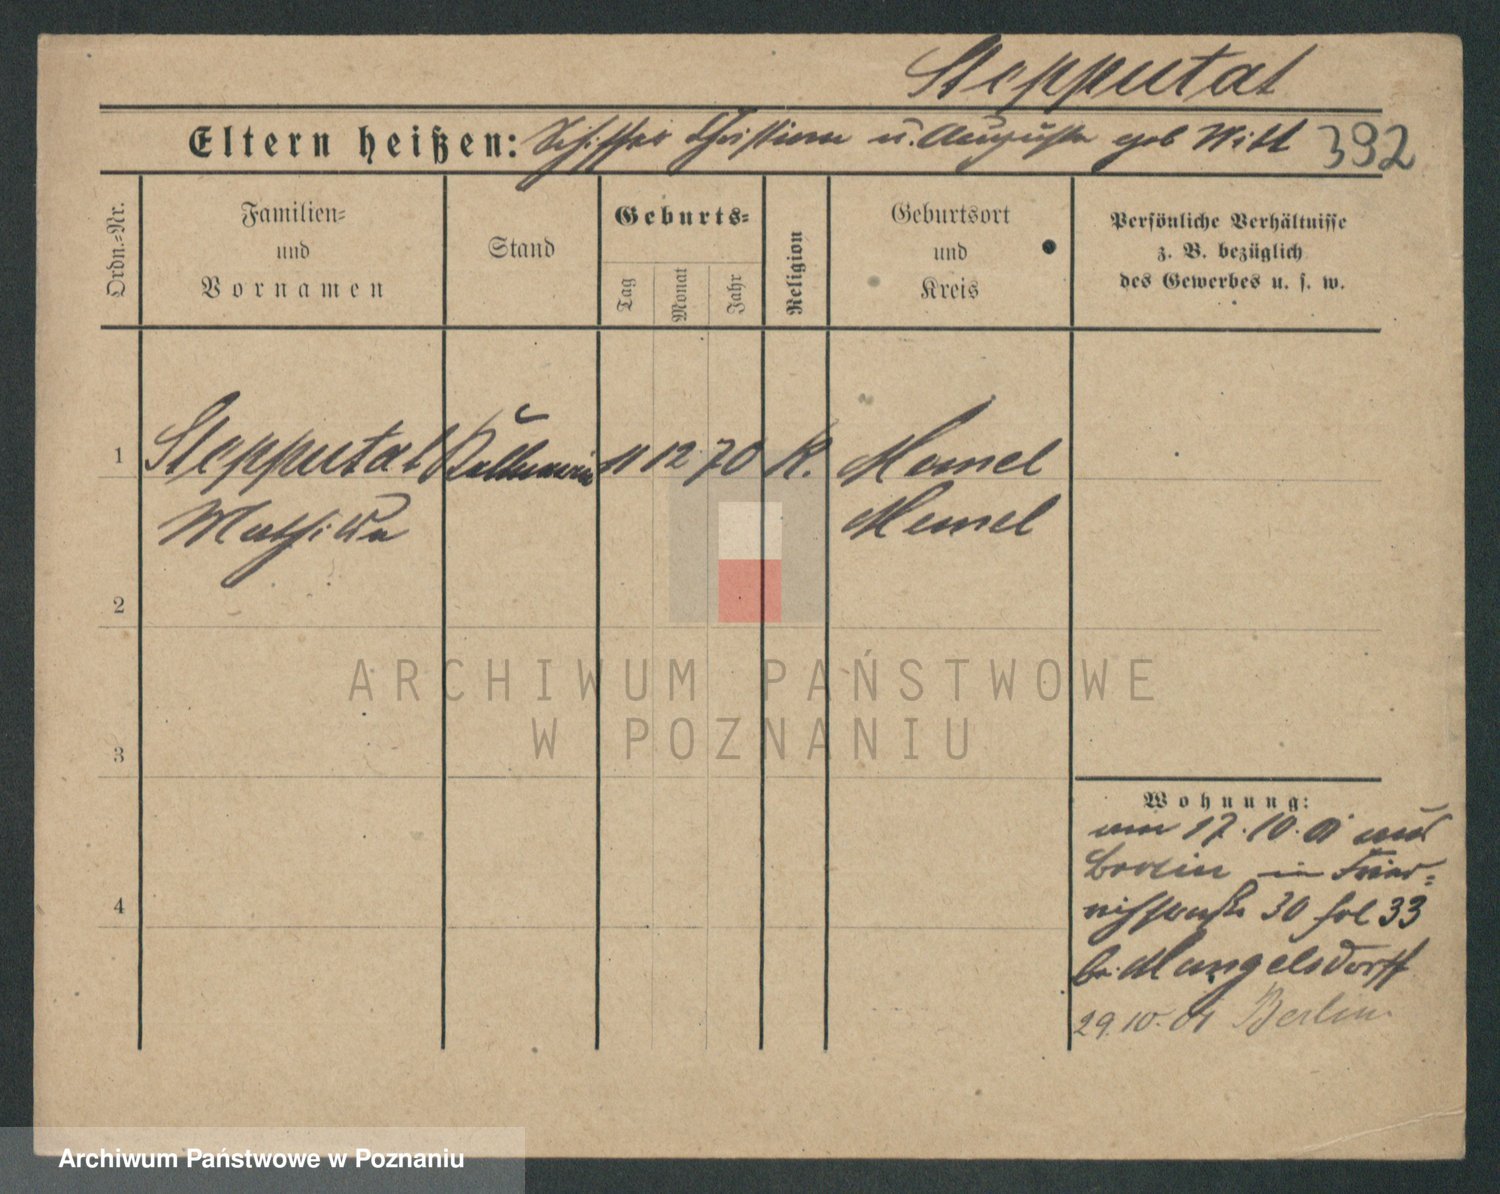 Stepputat
Eltern heißen: Schiffer Christian u. Auguste geb Witt 392
Ordn.=Nr.
Familien=
und
Vornamen
Stand
Geburts=
Tag
Monat
Jahr
Religion
Geburtsort
und
Kreis
Persönliche Verhältnisse
z. B. bezüglich
des Gewerbes u. s. w.
1 Stepputat 11 12 70 K. Memel
Mathilde Memel
2
3
4
Wohnung:
am 17.10.01 aus
Berlin in
30 fol 33
bei Mangelsdorff
29.10.01 Berlin
ARCHIWUM PAŃSTWOWE
W POZNANIU
Archiwum Państwowe w Poznaniu